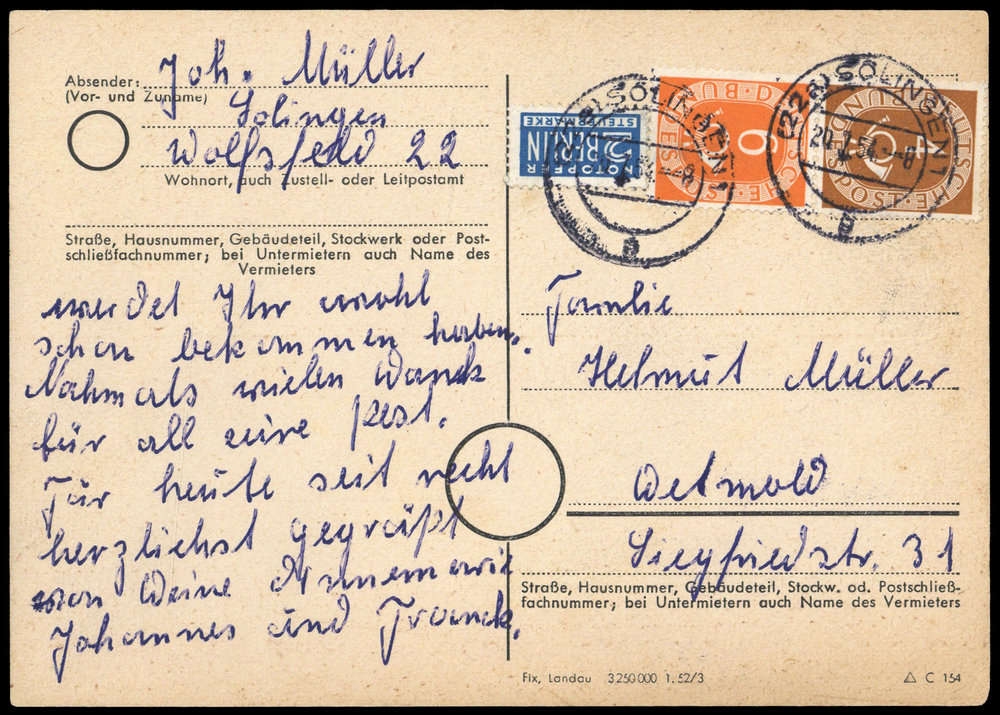 Absender:
(Vor- und Zuname)
Joh. Müller
Solingen
Wolfsfeld 22
Wohnort, auch Zustell- oder Leitpostamt
Straße, Hausnummer, Gebäudeteil, Stockwerk oder Post-
schließfachnummer; bei Untermietern auch Name des
Vermieters
werdet Ihr wohl
schon bekommen haben.
Nahmals vielen Danck
für all eure post.
Für heute seit recht
herzlichst gegrüßt
von Deine
Johannes und Franck.
NOTOPFER
2 BERLIN
STEUERMARKE
6
4
SOLINGEN 1
(22a) SOLINGEN 1
a
a
Familie
Helmut Müller
Detmold
Siegfriedstr. 31
Straße, Hausnummer, Gebäudeteil, Stockw. od. Postschließ-
fachnummer; bei Untermietern auch Name des Vermieters
Fix, Landau 3250000 1.52/3
C 154